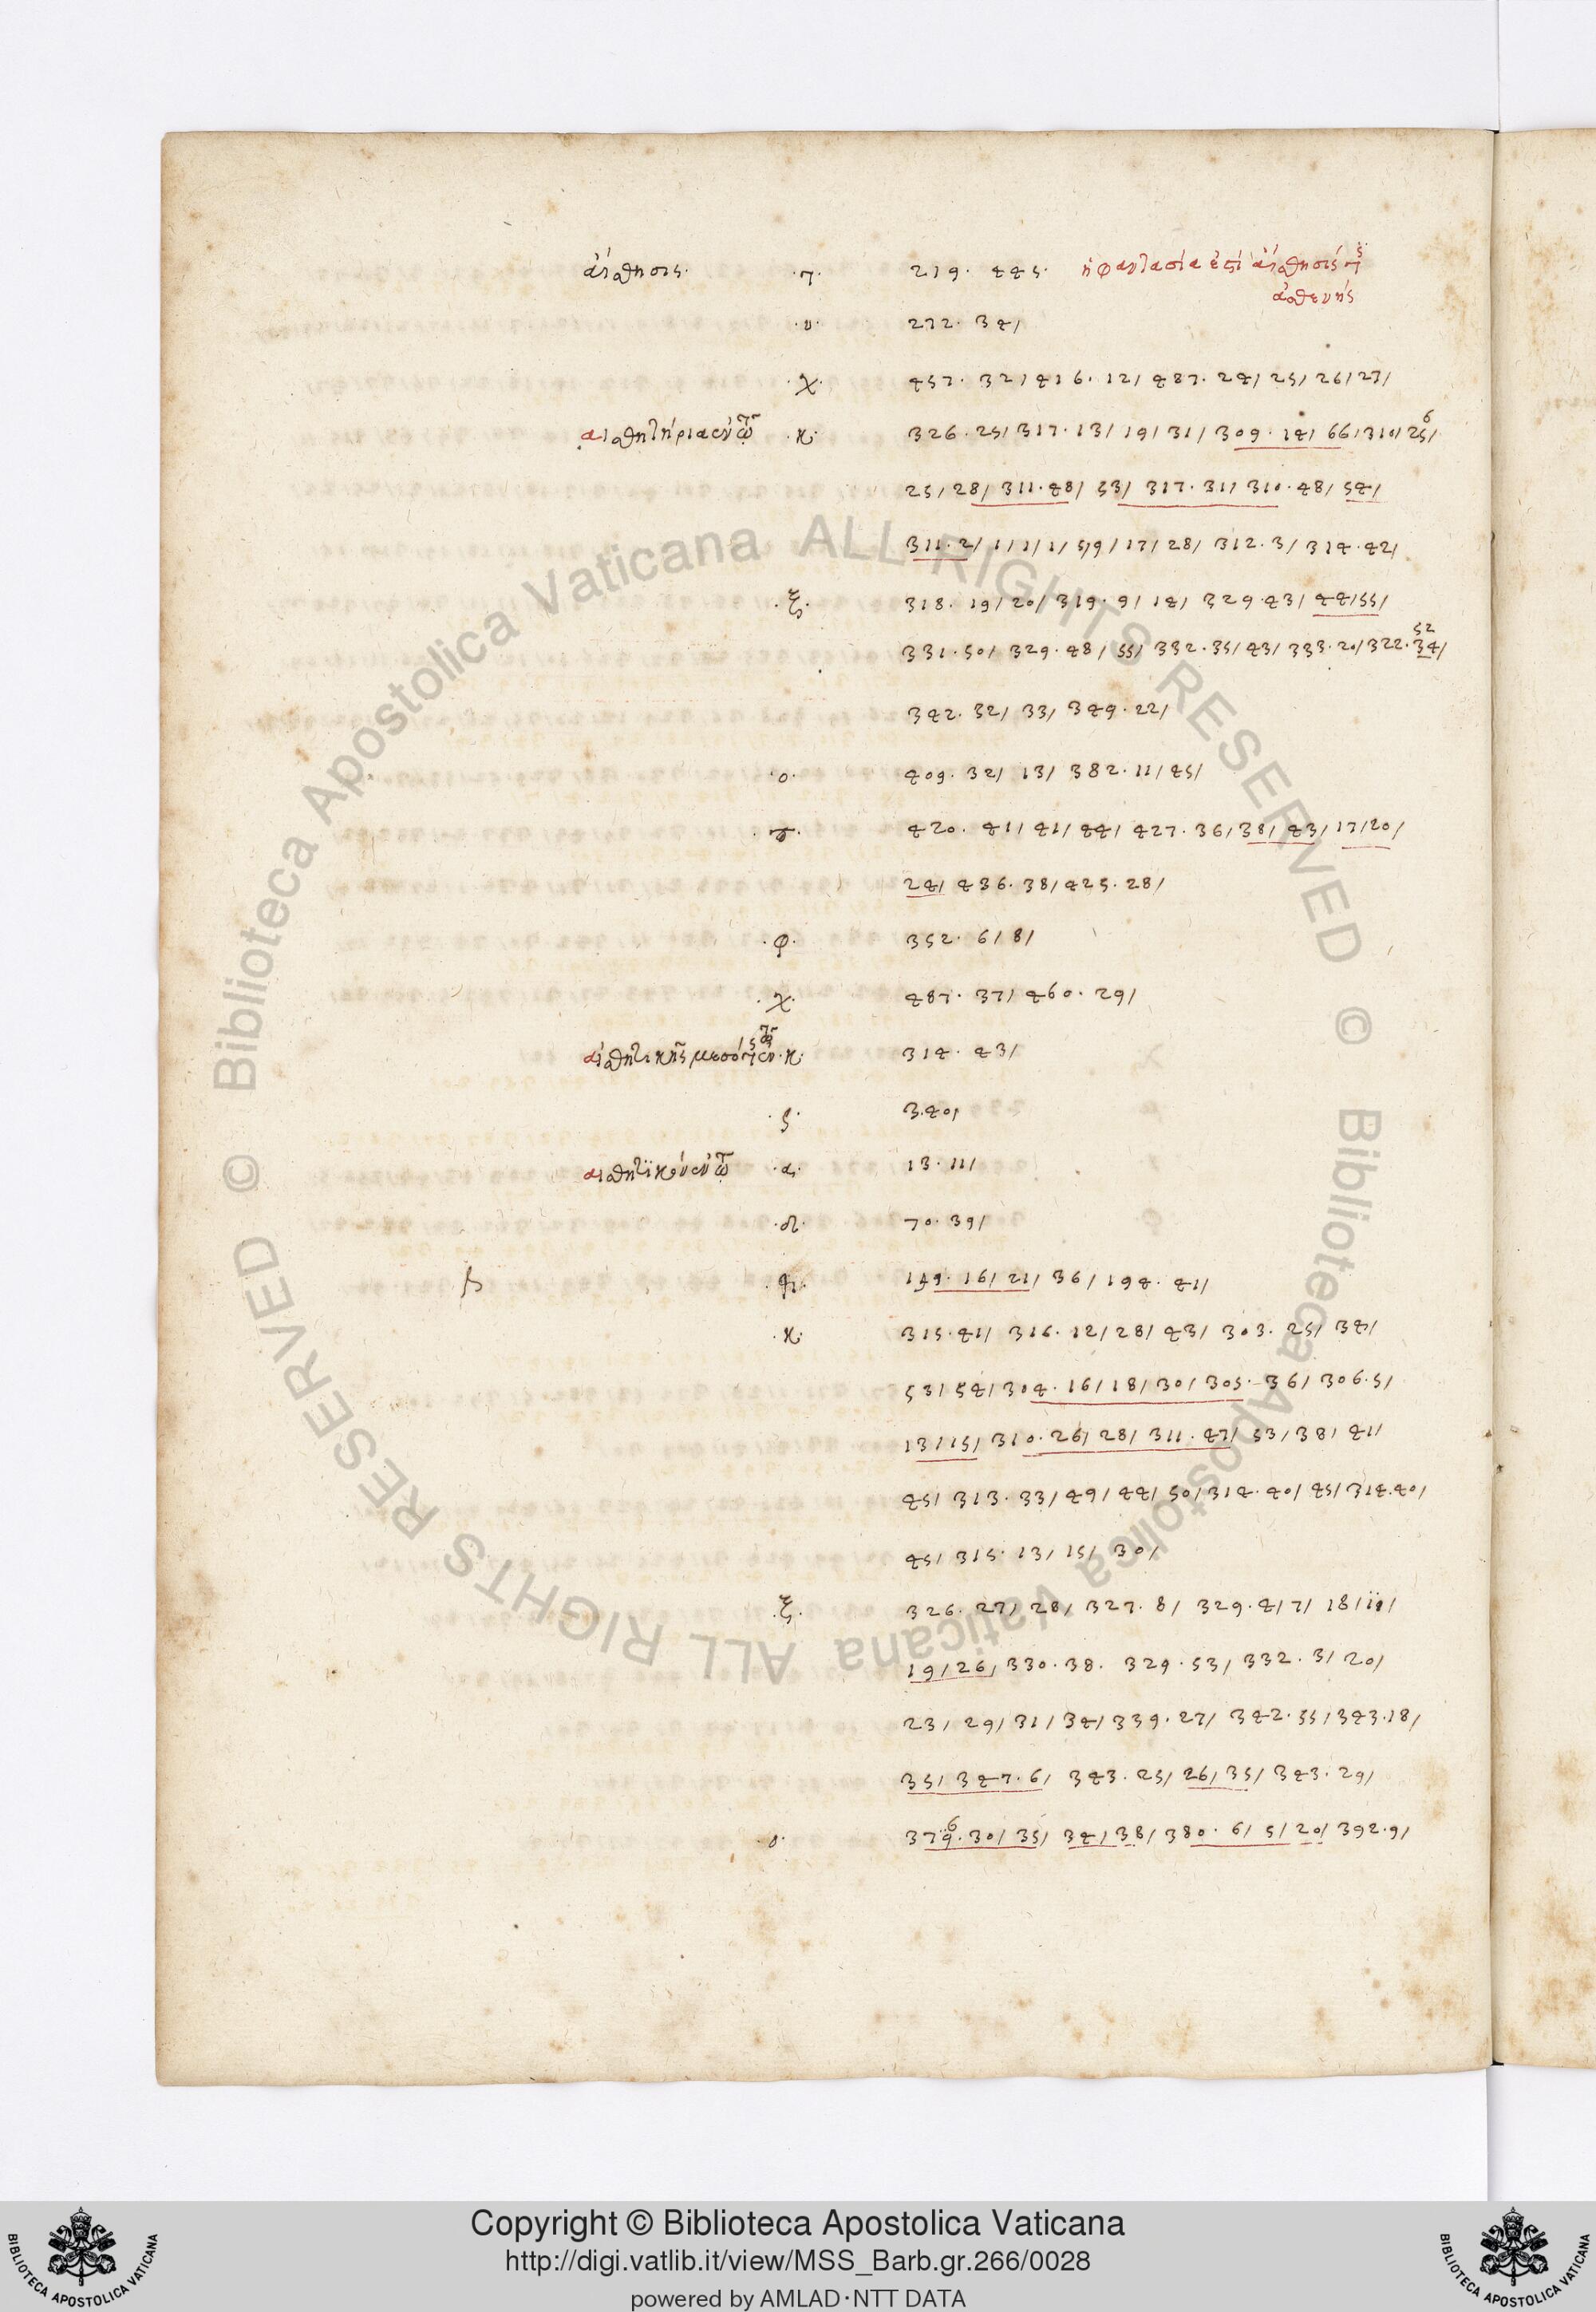 αἴσθησις. ·τ· 219. 445. ἡ φαντασία ἐστὶ αἴσθησίς τις
ἀσθενής
·υ· 272. 34/
·χ· 457. 32/ 416. 12/ 487. 24/ 25/ 26/ 27/
αἰσθητήρια ·κ· 326. 25/ 317. 13/ 19/ 31/ 309. 14/ 66/ 310/ 25/
6
25/ 28/ 311. 48/ 53/ 317. 31/ 310. 48/ 54/
311. 2/ 1/ 1/ 1/ 5/9/ 17/ 28/ 312. 3/ 314. 42/
·ξ· 318. 19/ 20/ 319. 9/ 14/ 329. 43/ 44/ 55/
52
331. 50/ 329. 48/ 55/ 332. 35/ 43/ 333. 20/ 322. 34/
342. 32/ 33/ 349. 22/
·ο· 409. 32/ 13/ 382. 11/ 45/
420. 41/ 41/ 44/ 427. 36/ 38/ 43/ 17/ 20/
24/ 436. 38/ 425. 28/
·φ· 352. 6/ 8/
·χ· 487. 37/ 460. 29/
αἰσθητικῆς ·κ· 314. 43/
·ς· 3.40/
αἰσθητικὸν ·α· 13. 11/
·δ· 70. 39/
149. 16/ 21/ 36/ 194. 41/
·κ· 315. 41/ 316. 12/ 28/ 43/ 303. 25/ 34/
53/ 54/ 304. 16/ 18/ 30/ 305. 36/ 306. 5/
13/ 15/ 310. 26/ 28/ 311. 47/ 53/ 38/ 41/
45/ 313. 33/ 49/ 44/ 50/ 314. 40/ 45/ 314. 40/
45/ 315. 13/ 15/ 30/
·ξ· 326. 27/ 28/ 327. 8/ 329. 4/ 7/ 18/
19/ 26/ 330. 38. 329. 53/ 332. 3/ 20/
23/ 29/ 31/ 34/ 339. 27/ 342. 55/ 343. 18/
35/ 347. 6/ 343. 25/ 26/ 35/ 343. 29/
6
·ο· 379. 30/ 35/ 34/ 38/ 380. 6/ 5/ 20/ 392. 9/
© Biblioteca Apostolica Vaticana ALL RIGHTS RESERVED © Biblioteca Apostolica Vaticana ALL RIGHTS RESERVED
Copyright © Biblioteca Apostolica Vaticana
http://digi.vatlib.it/view/MSS_Barb.gr.266/0028
powered by AMLAD·NTT DATA
BIBLIOTECA APOSTOLICA VATICANA
BIBLIOTECA APOSTOLICA VATICANA